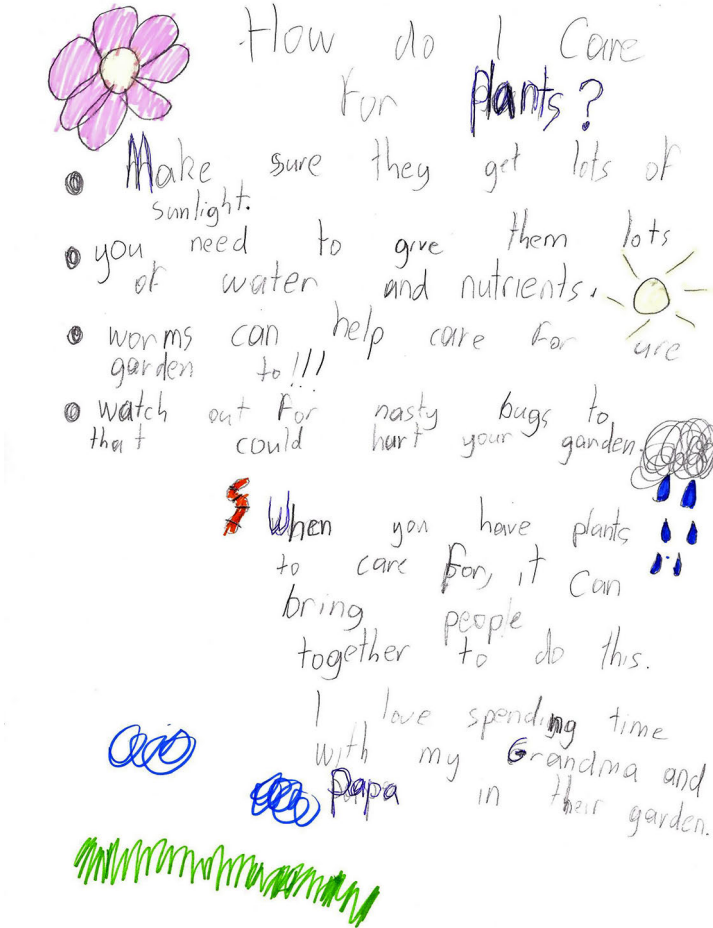 How do I Care
For plants?
Make sure they get lots of
sunlight.
you need to give them lots
of water and nutrients.
worms can help care For ure
garden to!!!
watch out For nasty bugs to
that could hurt your garden.
When you have plants
to care For, it can
bring people
together to do this.
I love spending time
with my Grandma and
Papa in their garden.